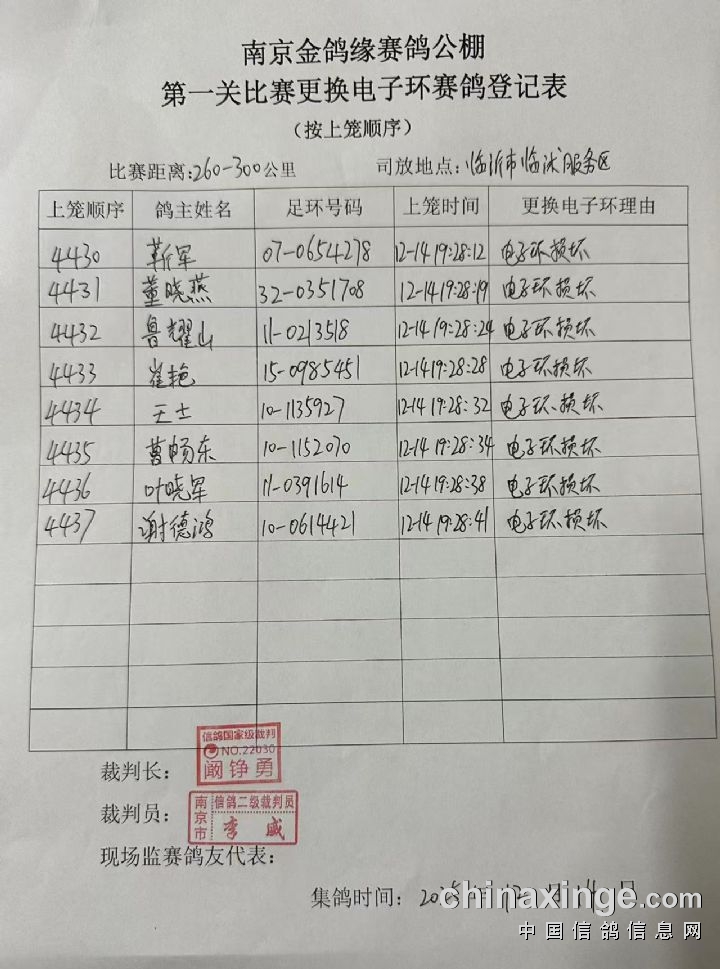 南京金鸽缘赛鸽公棚
第一关比赛更换电子环赛鸽登记表
（按上笼顺序）
比赛距离:260-300公里 司放地点:临沂市临沭服务区
上笼顺序 鸽主姓名 足环号码 上笼时间 更换电子环理由
4430 靳军 07-0654278 12-14 19:28:12 电子环损坏
4431 董晓燕 32-0351708 12-14 19:28:19 电子环损坏
4432 鲁耀山 11-0213518 12-14 19:28:24 电子环损坏
4433 崔艳 15-0985451 12-14 19:28:28 电子环损坏
4434 王士 10-1135927 12-14 19:28:32 电子环损坏
4435 曹畅东 10-1152070 12-14 19:28:34 电子环损坏
4436 叶晓军 11-0391614 12-14 19:28:38 电子环损坏
4437 谢德鸿 10-0614421 12-14 19:28:41 电子环损坏
信鸽国家级裁判
NO.22030
裁判长: 阚铮勇
裁判员: 南京市 信鸽二级裁判员
李威
现场监赛鸽友代表:
集鸽时间: 2025年12月14日
chinaxinge.com
中国信鸽信息网